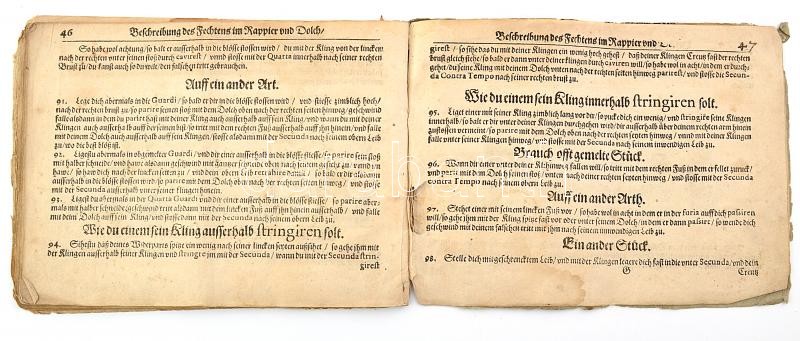 46 Beschreibung des Fechtens im Rappier vnd Dolch/
So habe wol achtung/so balt er ausserhalb in die blösse stossen wird / du mit der Kling von der lincken
nach der rechten vnter seinen stoß durch cavirest / vnnd stosse mit der Quarta innerhalb nach seiner rechten
Brust zu/du kanst auch so du wilt/den falsch tritt gebrauchen.
Auff ein ander Art.
91. Lege dich abermals in die Guardi/ so bald er dir in die blösse stossen wird / vnd stiesse zimblich hoch/
nach der rechten brust zu/so parire seinen stoß mit dem Dolch oben nach der rechten seiten hinweg/geschwind
auch ausserhalb auff sein Kling/vnd wann du mit deiner
Klingen auch ausserhalb auff der seinen bist/so tritt mit dem rechten Fuß ausserhalb auff ihn hinein/vnd falle
mit deinem Dolch auch ausserhalb auff seinen Klingen/stosse alsdann mit der Secunda nach seinem obern Leib
zu/wo die beste blöß ist.
92. Ligestu abermals in obgemelter Guardi/vnd dir einer ausserhalb in die blösse stiesse/so parire sein stoß
mit halber schneide/vnd
haw/so haw dich nach der lincken seiten zu / vnd dein obern Leib retrahire damit / so bald er dir alsdann
ausserhalb in die blösse stossen wird/so parire mit dem Dolch oben nach der rechten seiten hinweg / vnd stosse
mit der Secunda ausserhalb vnter seiner Klingen hinein.
93. Ligestu abermals in der Quarta Guardi vnd dir einer ausserhalb in die blösse stiesse/so parire aber-
mals mit halber schneide/geschwind trett alsdann mit dem lincken Fuß auff ihn ausserhalb hinein / vnd falle
mit deinem Dolch auff sein Kling/vnd stosse dann mit der Secunda nach seinem obern Leib zu.
Wie du einem sein Kling ausserhalb stringiren solt.
94. Sihestu daß deines Widerparts spitze ein wenig nach seiner lincken seiten außsihet / so gehe ihm mit
der Klingen ausserhalb seiner Klingen vnd stringir ihm mit der Secunda/ wann du mit der Secunda strin-
girest
Beschreibung des Fechtens im Rappier vnd D 47
girest / so sihe das du mit deiner Klingen ein wenig hoch gehest / daß deiner Klingen Creutz fast der rechten
brust gleich stehe/so bald er dann vnter deiner klingen durch caviren will/so habe wol in acht/in dem er durch-
gehet/du seine Kling mit deinem Dolch vnten nach der rechten seiten hinweg parirest/vnd stosse die Secun-
da Contra Tempo nach seiner rechten brust zu.
Wie du einem sein Kling innerhalb stringiren solt.
95. Liget einer mit seiner Kling zimblich lang vor dir/so bucke dich ein wenig/vnd stringire seine Klingen
innerhalb/so bald er dir vnter deiner Klingen durchgehen wird/dir ausserhalb vber deinem rechten arm hinein
zustossen vermeint/so parire mit dem Dolch oben nach der rechten seiten hinweg/
geschwind mit dem rechten Fuß hinein/vnd stosse mit der Secunda nach seinem inwendigen Leib zu.
Brauch offt gemelte Stück.
96. Wann dir einer vnter deiner Klingen hinweg fallen will/so tritt mit dem rechten Fuß in dem er fellet zuruck/
vnd parir mit dem Dolch seinen stoß/ vnten nach deiner rechten seiten hinweg/vnd stosse mit der Secunda
contra Tempo nach seinem obern Leib zu.
Auff ein ander Arth.
97. Stehet einer mit seinem lincken Fuß vor / so hab wol in acht in dem er in der furia auff dich passiren
will/so gehe ihm mit der Kling spitze fast vor oder vnter seinen Dolch/in dem er dann passirt / so wende dich
geschwind mit deinem falschen tritt mit ihm nach seinem inwendigen Leib zu.
Ein ander Stück.
98. Stelle dich mit geschrenctem Leib/vnd mit der Klingen legere dich fast in die vnter Secunda/vnd dein
G Creutz